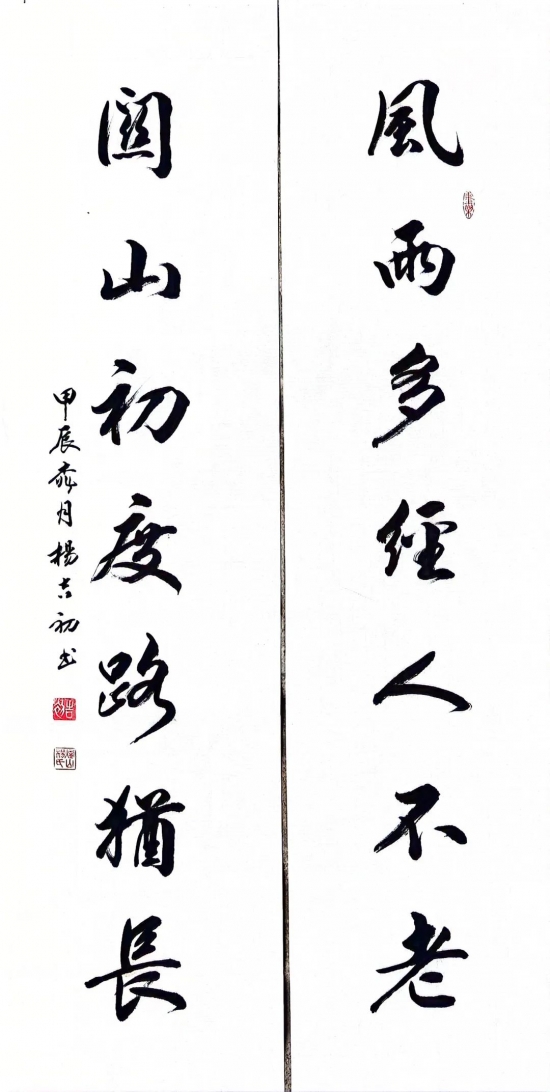 風雨多經人不老
關山初度路猶長
甲辰春月楊吉初書